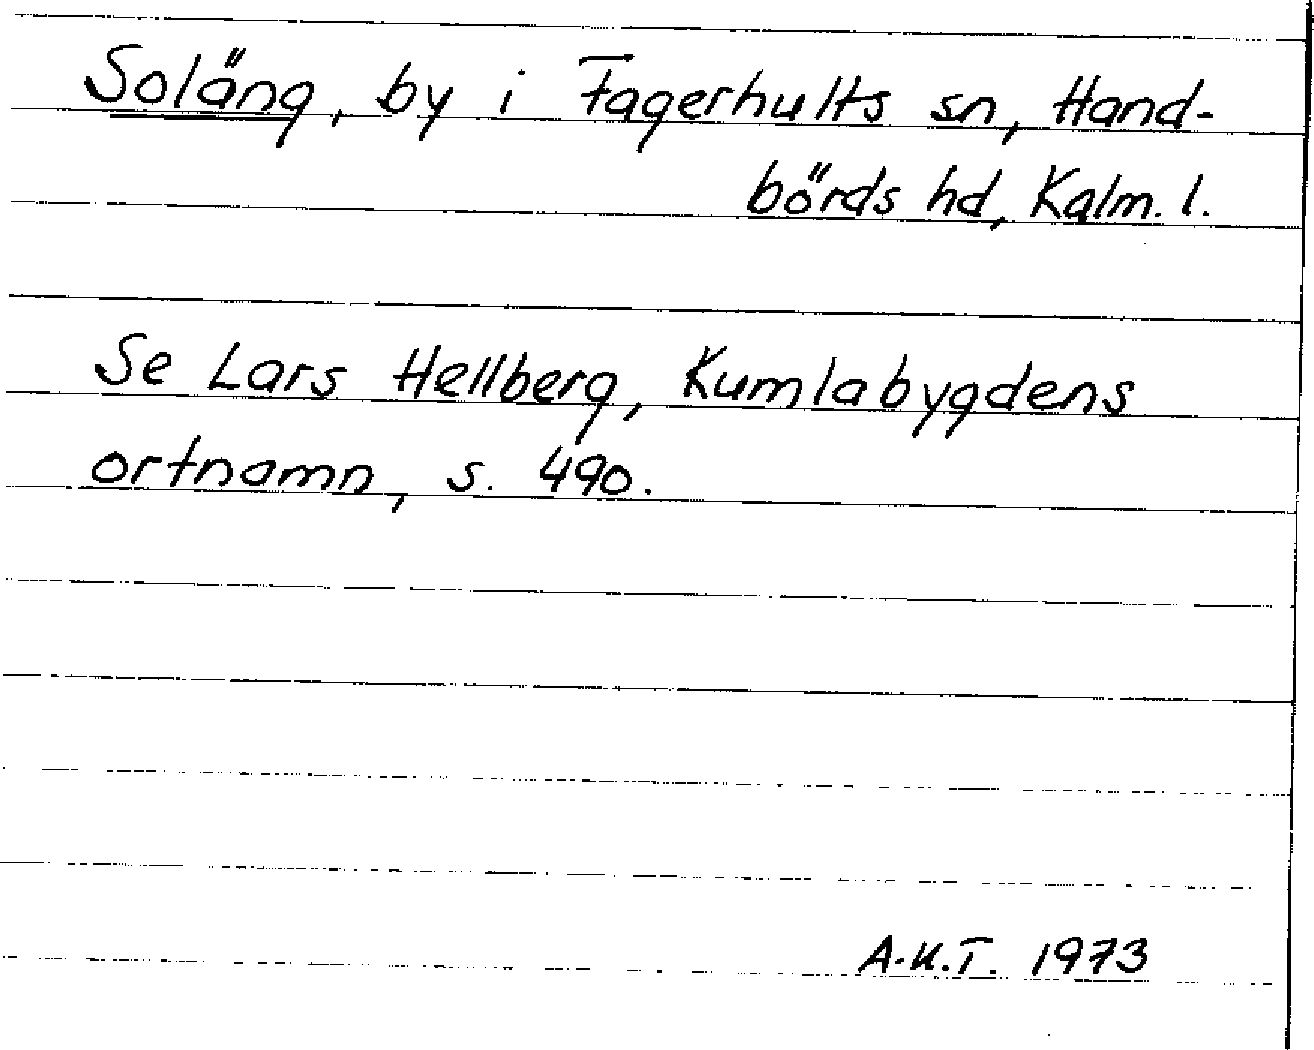 Soläng, by i Fagerhults sn, Hand-
börds hd, Kalm. l.
Se Lars Hellberg, Kumlabygdens
ortnamn, s. 490.
A.K.T. 1973